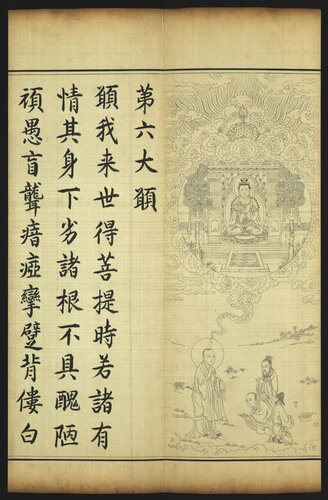 第六大願
願我来世得菩提時若諸有
情其身下劣諸根不具醜陋
頑愚盲聾瘖瘂攣躄背僂白